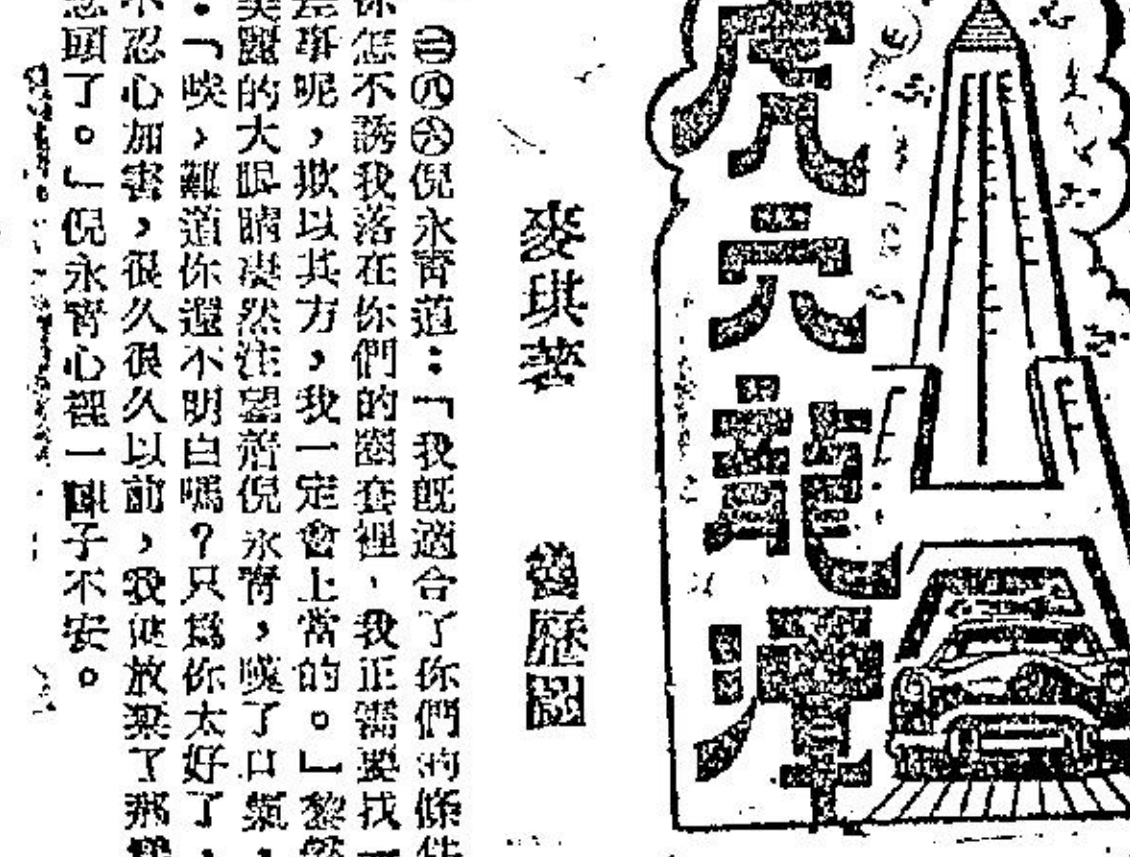 虎穴龍潭
麥琪著
㊁㊇㊅倪永甯道：「我既適合了你們的條件
你怎不誘我落在你們的圈套裡，我正需要找一
差事呢，欺以其方，我一定會上當的。」黎
美麗的大眼睛淒然注望着倪永甯，嘆了口氣，
：「唉，難道你還不明白嗎？只爲你太好了，
不忍心加害，很久很久以前，我便放棄了那種
念頭了。」倪永甯心裡一陣子不安。